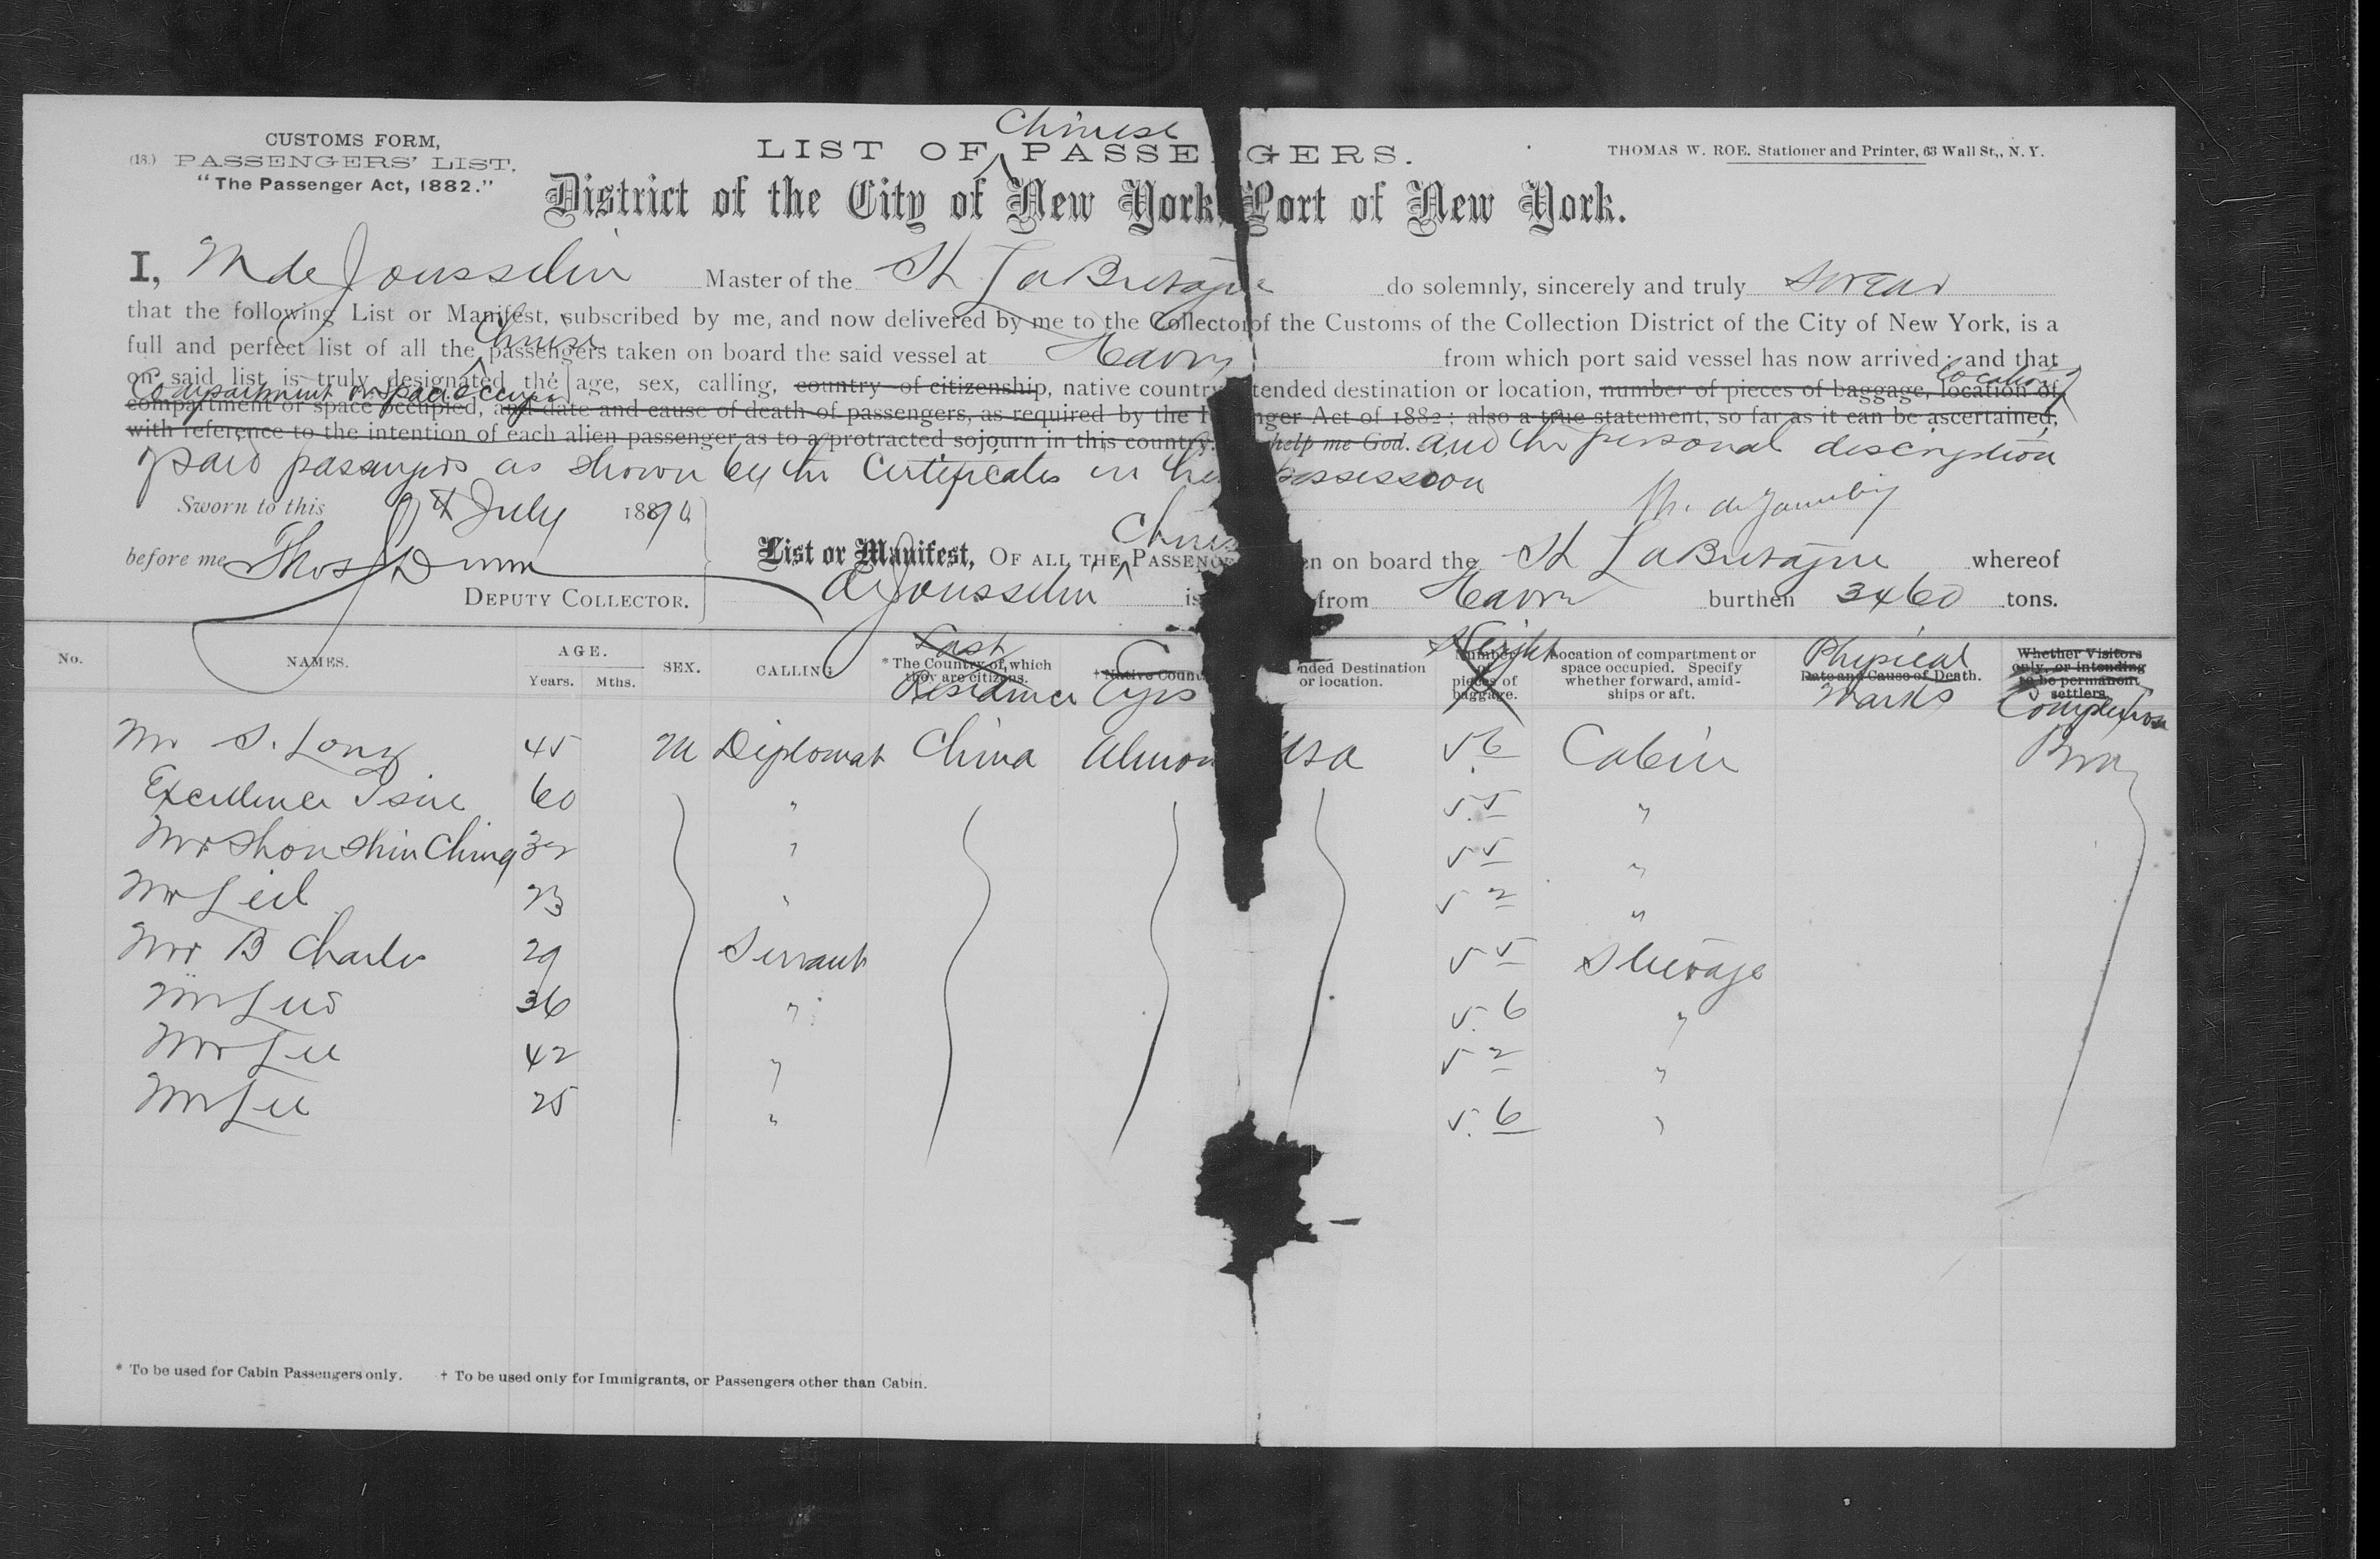 CUSTOMS FORM,
(18.) PASSENGERS' LIST.
"The Passenger Act, 1882."
Chinese
LIST OF PASSE GERS.
THOMAS W. ROE. Stationer and Printer, 63 Wall St., N. Y.
District of the City of New York, Port of New York.
I, M de Jousselin Master of the St La Bretagne do solemnly, sincerely and truly swear
that the following List or Manifest, subscribed by me, and now delivered by me to the Collector of the Customs of the Collection District of the City of New York, is a
Chinese
full and perfect list of all the passengers taken on board the said vessel at Havre from which port said vessel has now arrived; and that
on said list is truly designated the age, sex, calling, country of citizenship, native country tended destination or location, number of pieces of baggage, location of
Compartment or space
compartment or space occupied, and date and cause of death of passengers, as required by the nger Act of 1882; also a true statement, so far as it can be ascertained,
with reference to the intention of each alien passenger as to a protracted sojourn in this country. help me God. and the personal description
said passengers as shown by the Certificates in possession
Sworn to this July 1890
before me Thos Dunn
DEPUTY COLLECTOR.
List or Manifest, OF ALL THE PASSENG n on board the St La Bretagne whereof
de Jousselin is from Havre burthen 3460 tons.
No. NAMES. AGE. Years. Mths. SEX. CALLING. * The Country of which they are citizens. † Native Coun nded Destination or location. Number of pieces of baggage. Location of compartment or space occupied. Specify whether forward, amidships or aft. Date and Cause of Death. Whether Visitors only, or intending to be permanent settlers.
Last Residence Eyes Height Physical Marks Complexion
Mr S. Long 45 M Diplomat China Almon USA 5 6 Cabin
Excellence 60 " 5.5 "
Mr Shon Shin Ching 32 " 5 5 "
Mr 23 " 5 2 "
Mr B Charles 29 Servant 5 5 Steerage
Mr 36 " 5.6 "
Mr Lee 42 " 5 2 "
Mr Lee 25 " 5.6 "
* To be used for Cabin Passengers only. † To be used only for Immigrants, or Passengers other than Cabin.